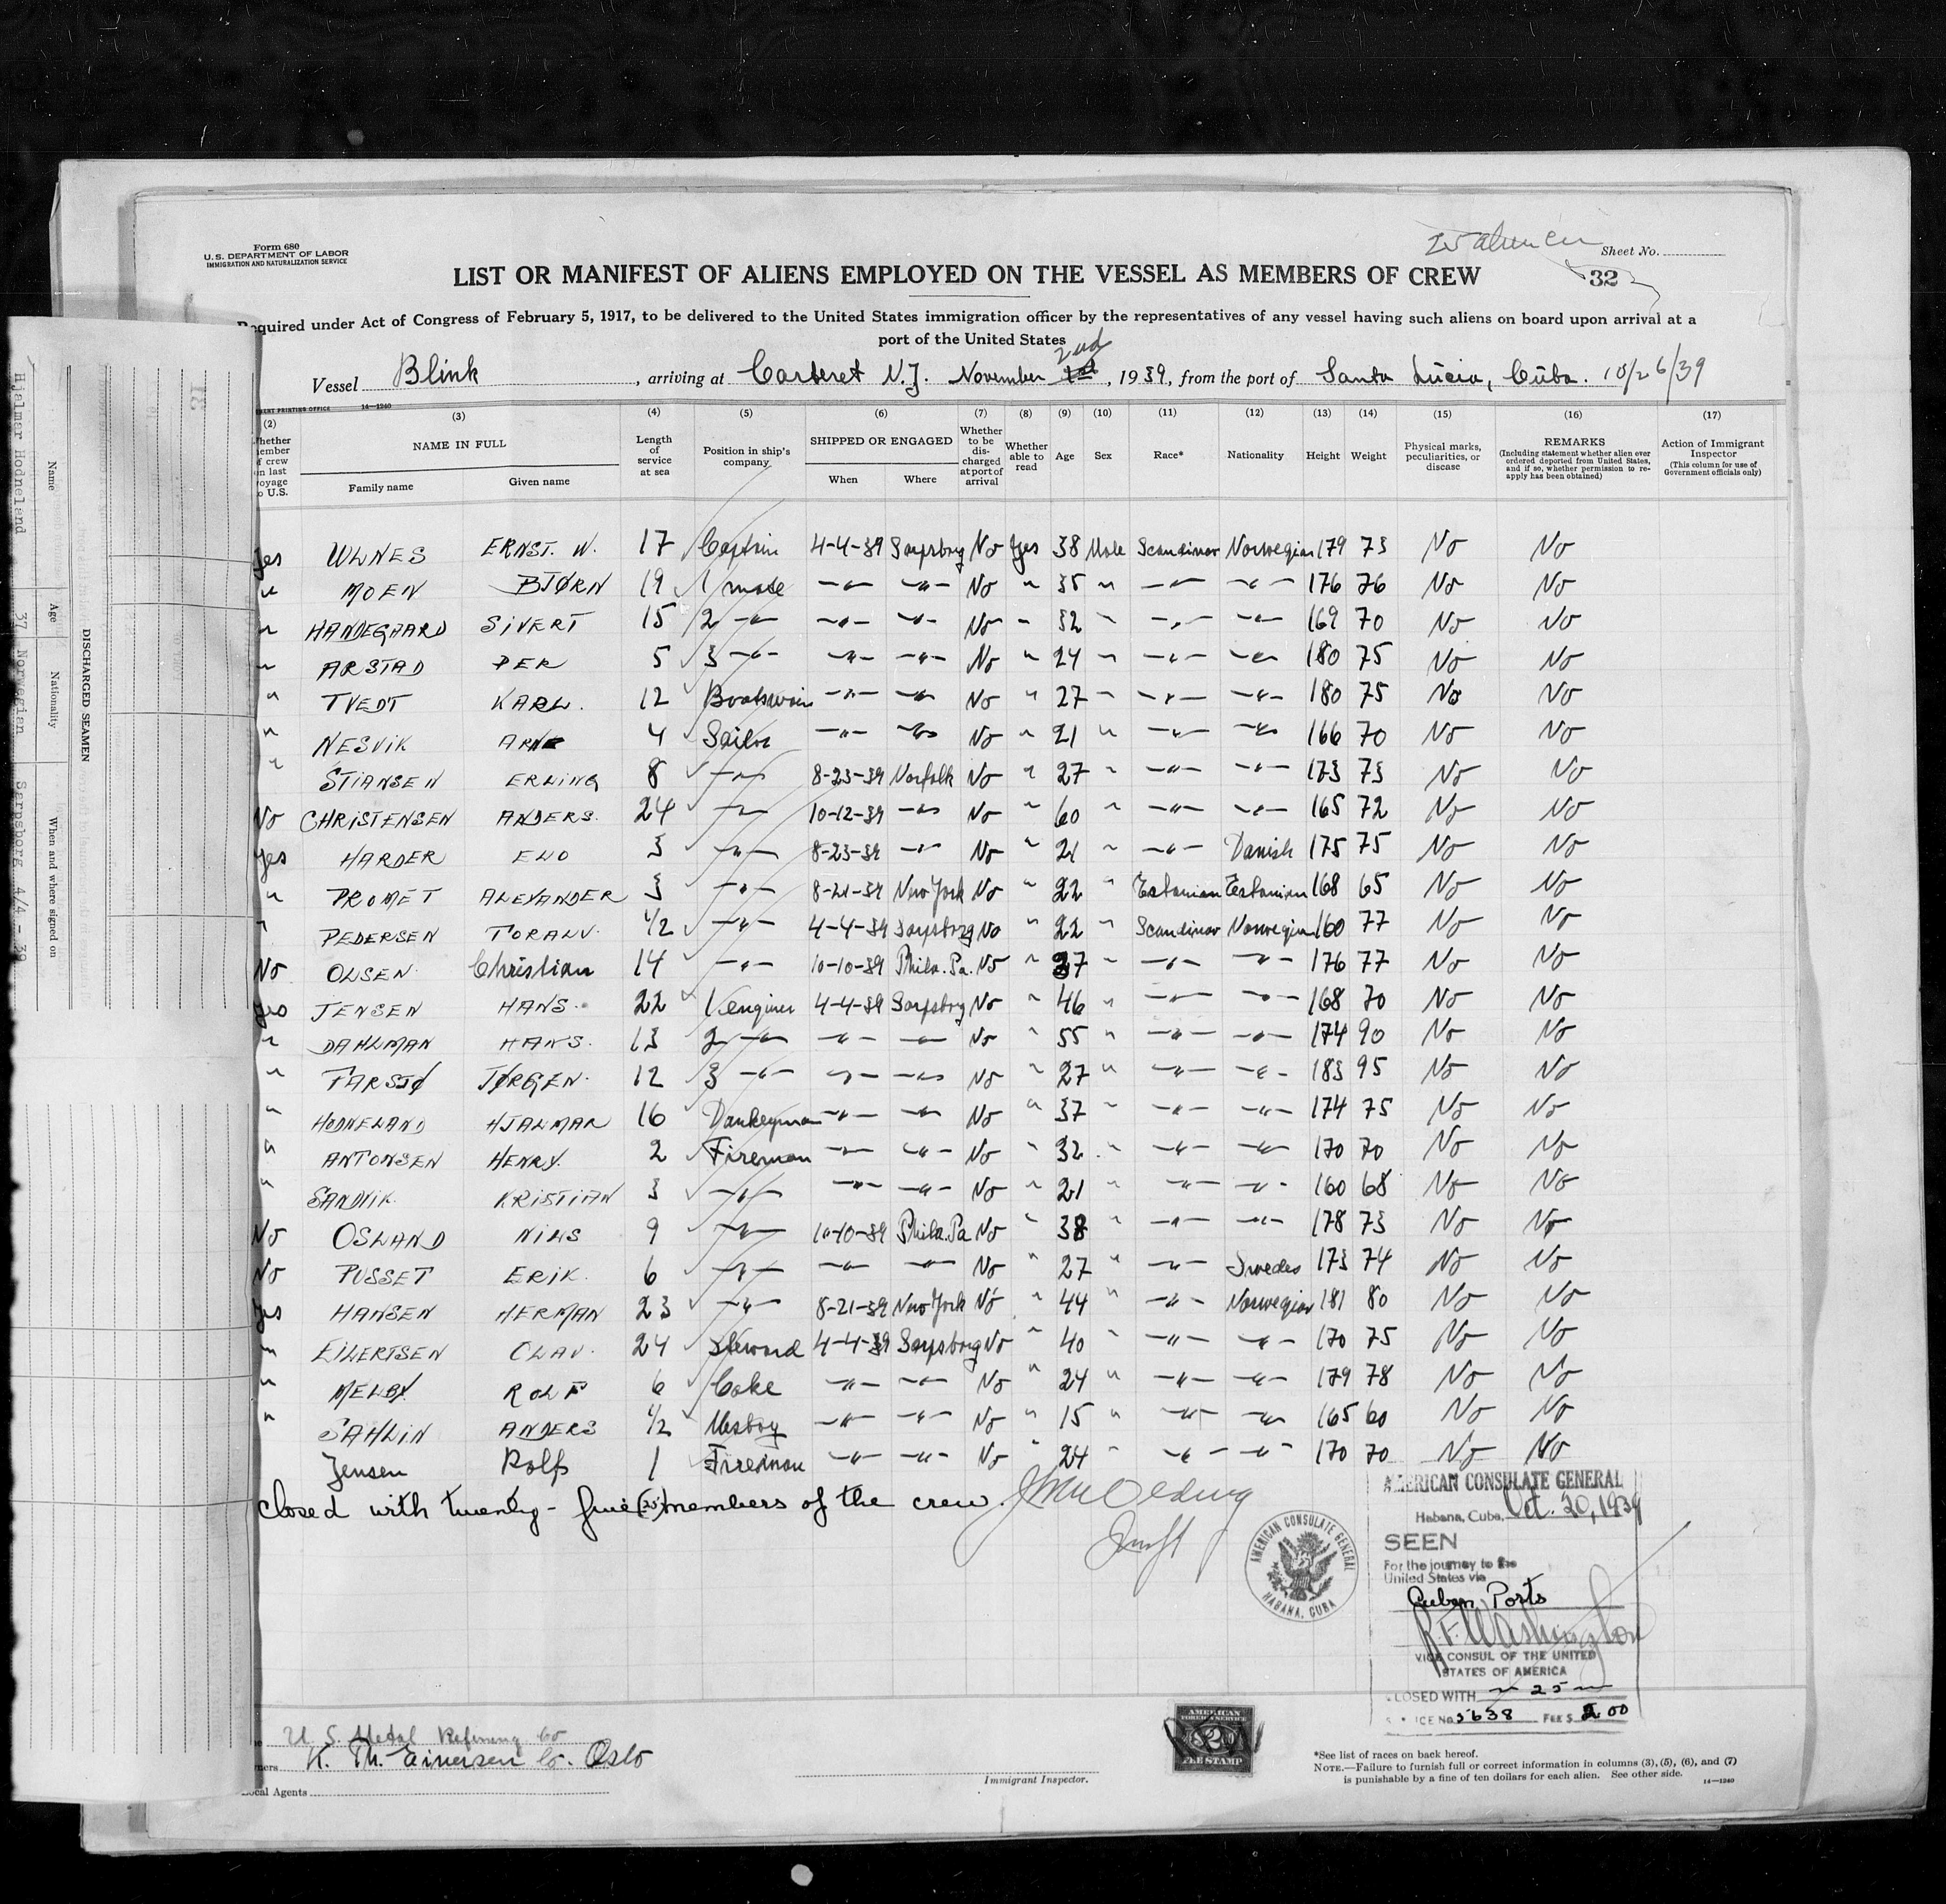 Form 680
U. S. DEPARTMENT OF LABOR
IMMIGRATION AND NATURALIZATION SERVICE
Sheet No.
LIST OR MANIFEST OF ALIENS EMPLOYED ON THE VESSEL AS MEMBERS OF CREW
32
Required under Act of Congress of February 5, 1917, to be delivered to the United States immigration officer by the representatives of any vessel having such aliens on board upon arrival at a
port of the United States
2nd
Vessel Blink, arriving at Carteret N.J. November 1st, 1939, from the port of Santa Lucia, Cuba. 10/26/39
14—1240
(2) (3) (4) (5) (6) (7) (8) (9) (10) (11) (12) (13) (14) (15) (16) (17)
NAME IN FULL
Family name Given name
Length of service at sea
Position in ship's company
SHIPPED OR ENGAGED
When Where
Whether to be discharged at port of arrival
Whether able to read
Age Sex Race* Nationality Height Weight
Physical marks, peculiarities, or disease
REMARKS
(Including statement whether alien ever ordered deported from United States, and if so, whether permission to re-apply has been obtained)
Action of Immigrant Inspector
(This column for use of Government officials only)
Yes ULNES ERNST. W. 17 Captain 4-4-39 Sarpsborg No Yes 38 Male Scandinav Norwegian 179 73 No No
" MOEN BJØRN 19 1 mate -"- -"- No " 35 " -"- -"- 176 76 No No
" HANDEGAARD SIVERT 15 2 -"- -"- -"- No " 32 " -"- -"- 169 70 No No
" ARSTAD PER 5 3 -"- -"- -"- No " 24 " -"- -"- 180 75 No No
" TVEDT KARL. 12 Boatswain -"- -"- No " 27 " -"- -"- 180 75 No No
" NESVIK ARNE 4 Sailor -"- -"- No " 21 " -"- -"- 166 70 No No
" STIANSEN ERLING 8 -"- 8-23-39 Norfolk No " 27 " -"- -"- 173 73 No No
No CHRISTENSEN ANDERS. 24 -"- 10-12-39 -"- No " 60 " -"- -"- 165 72 No No
Yes HARDER ELO 3 -"- 8-23-39 -"- No " 21 " -"- Danish 175 75 No No
" PROMET ALEXANDER 3 -"- 8-21-39 New York No " 22 " Estonian Estonian 168 65 No No
" PEDERSEN TORALV. 1/2 -"- 4-4-39 Sarpsborg No " 22 " Scandinav Norwegian 160 77 No No
No OLSEN Christian 14 -"- 10-10-39 Phila. Pa. No " 37 " -"- -"- 176 77 No No
Yes JENSEN HANS. 22 1 enginer 4-4-39 Sarpsborg No " 46 " -"- -"- 168 70 No No
" DAHLMAN HANS. 13 2 -"- -"- -"- No " 55 " -"- -"- 174 90 No No
" FARSJØ JØRGEN. 12 3 -"- -"- -"- No " 27 " -"- -"- 183 95 No No
" HODNELAND HJALMAR 16 Donkeyman -"- -"- No " 37 " -"- -"- 174 75 No No
" ANTONSEN HENRY. 2 Fireman -"- -"- No " 32 " -"- -"- 170 70 No No
" SANDVIK KRISTIAN 3 -"- -"- -"- No " 21 " -"- -"- 160 68 No No
No OSLAND NILS 9 -"- 10-10-39 Phila. Pa No " 38 " -"- -"- 178 73 No No
No PUSSET ERIK. 6 -"- -"- -"- No " 27 " -"- Swedes 173 74 No No
Yes HANSEN HERMAN 23 -"- 8-21-39 New York No " 44 " -"- Norwegian 181 80 No No
" EILERTSEN OLAV. 24 Steward 4-4-39 Sarpsborg No " 40 " -"- -"- 170 75 No No
" MELBY ROLF 6 Coke -"- -"- No " 24 " -"- -"- 179 78 No No
" SAHLIN ANDERS 1/2 Mesboy -"- -"- No " 15 " -"- -"- 165 60 No No
Jensen Rolf 1 Fireman -"- -"- No " 24 " -"- -"- 170 70 No No
closed with twenty-five (25) members of the crew.
AMERICAN CONSULATE GENERAL
Habana, Cuba, Oct. 20, 1939
SEEN
For the journey to the
United States via
Cuban Ports
R. F. Washington
VICE CONSUL OF THE UNITED
STATES OF AMERICA
CLOSED WITH 25
No. 5638 FEE $ 2.00
AMERICAN CONSULATE GENERAL
HABANA, CUBA
U. S. Metal Refining Co
K. Th. Einersen Co. Oslo
Local Agents
Immigrant Inspector.
AMERICAN
FOREIGN SERVICE
$2
FEE STAMP
*See list of races on back hereof.
NOTE.—Failure to furnish full or correct information in columns (3), (5), (6), and (7)
is punishable by a fine of ten dollars for each alien. See other side.
14—1240
DISCHARGED SEAMEN
Name Age Nationality When and where signed on
Hjalmar Hodneland 37 Norwegian Sarpsborg 4/4 - 39